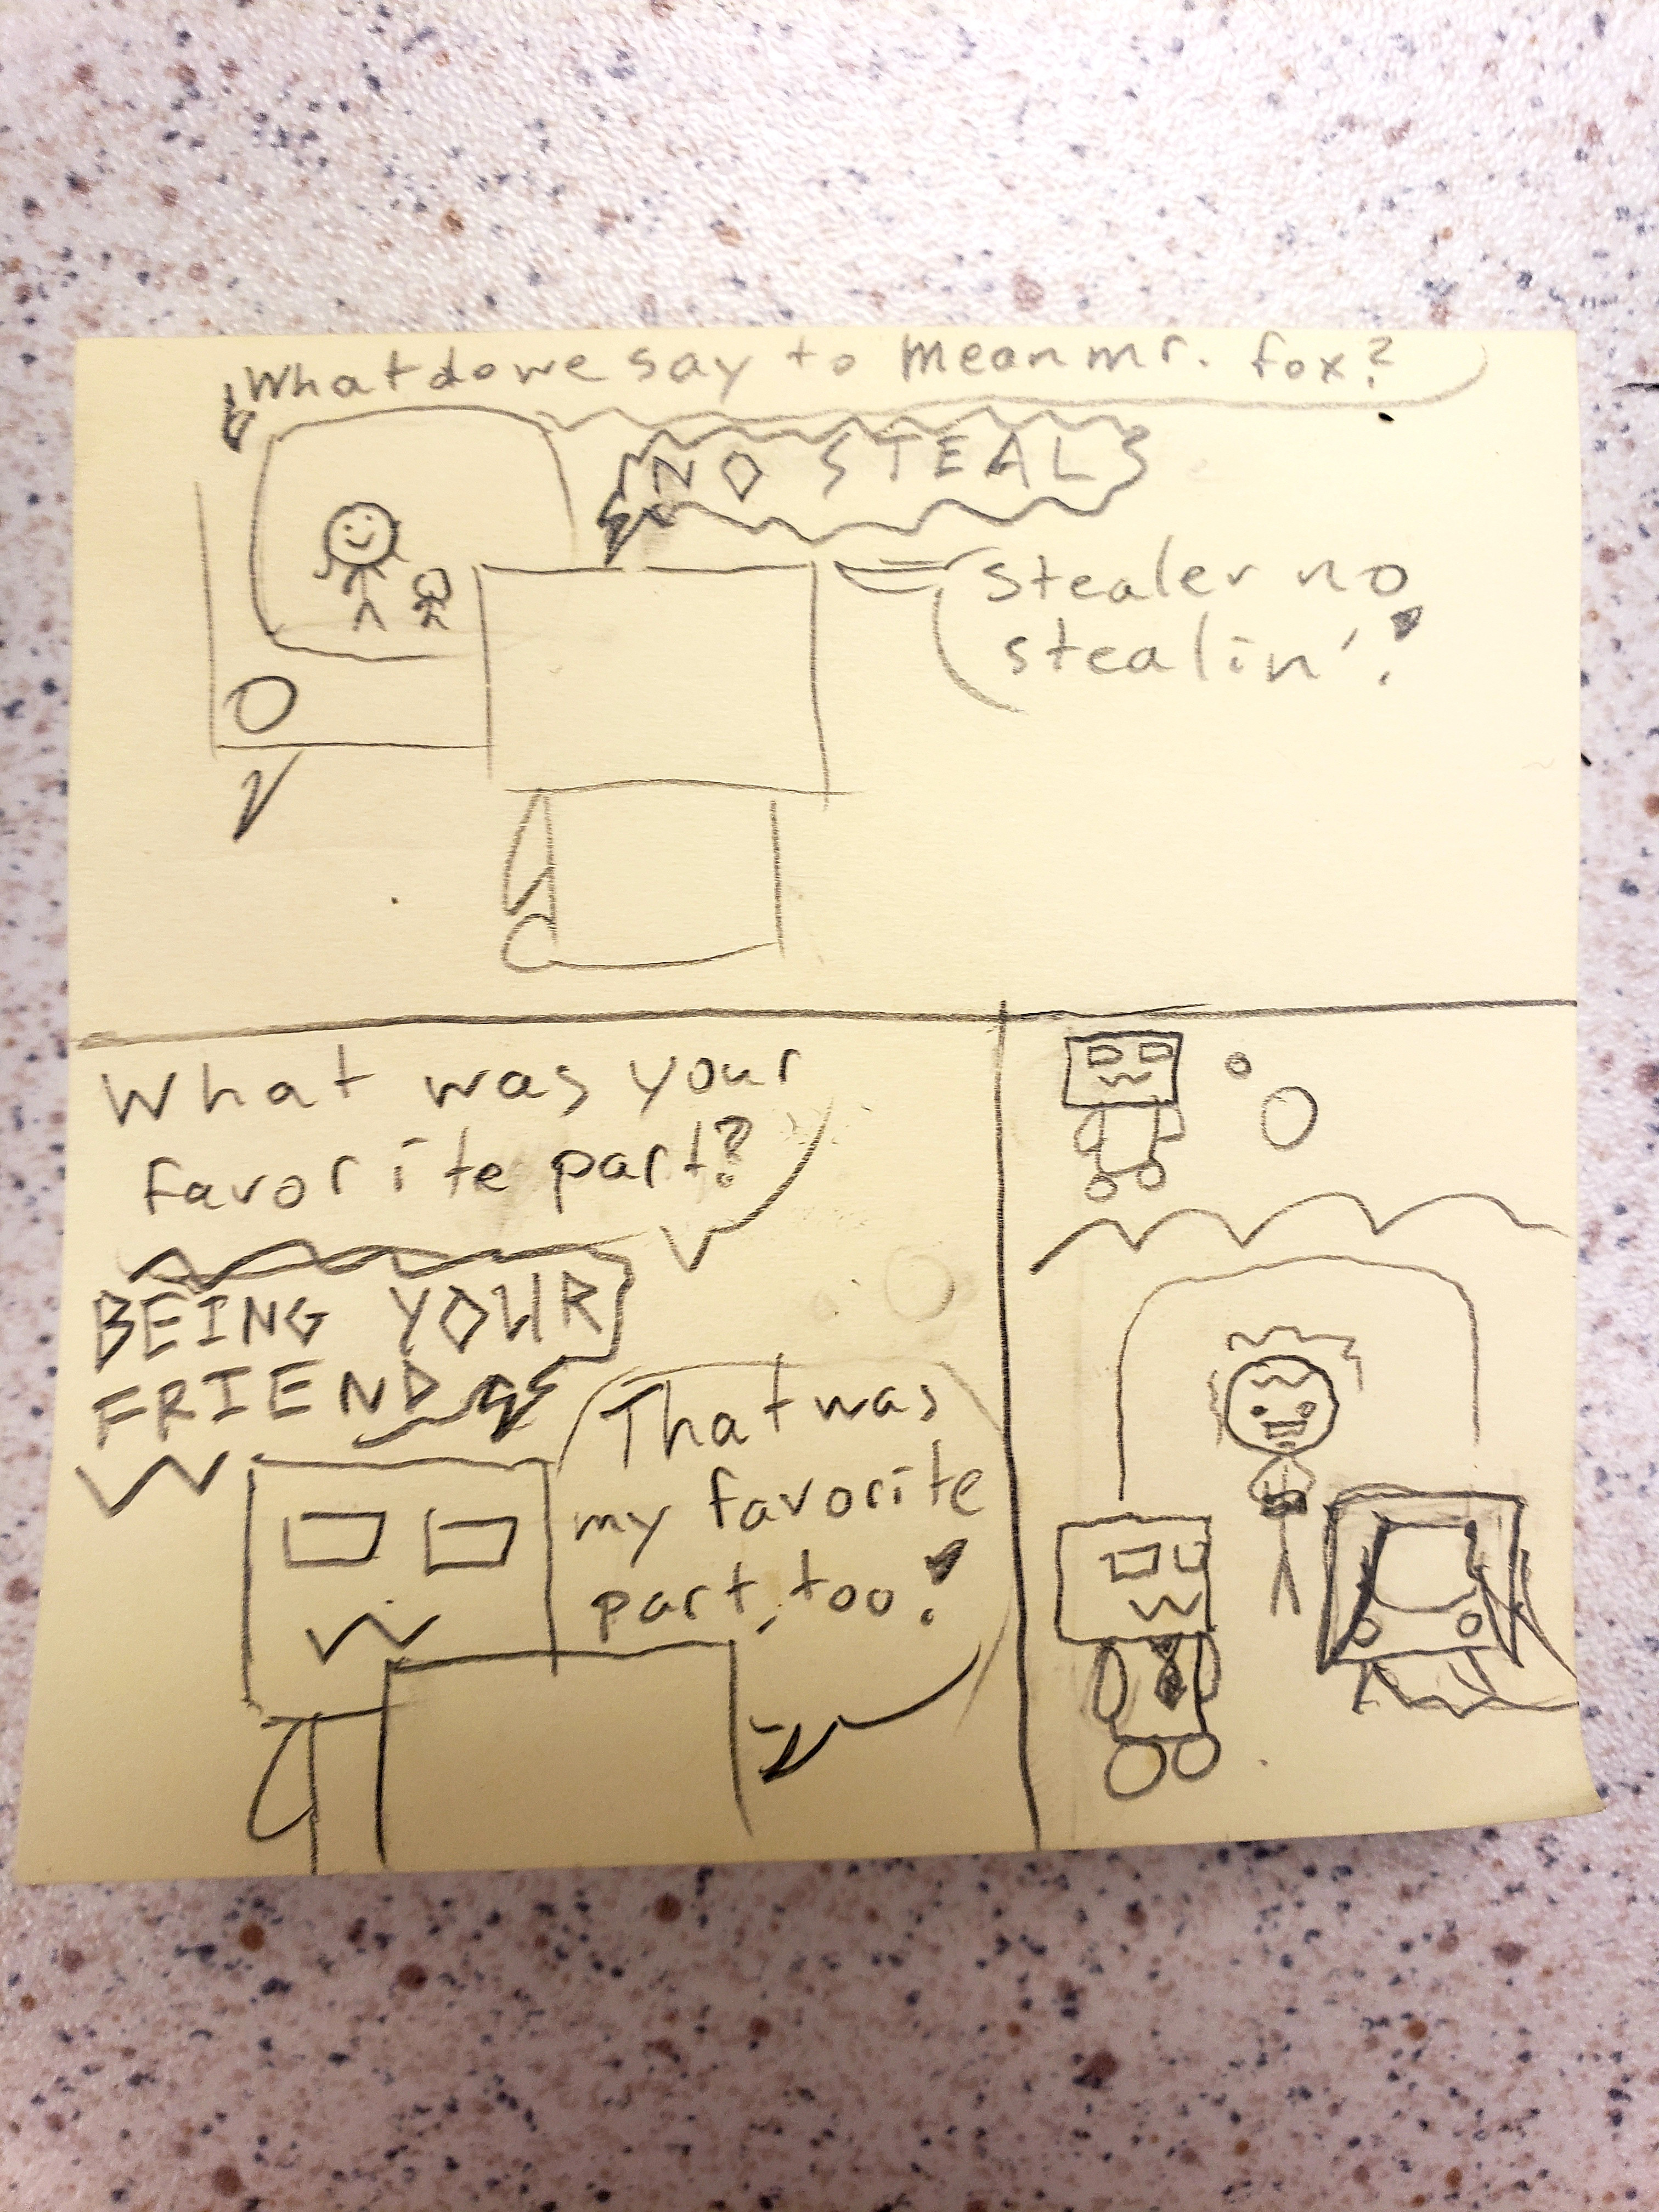 What do we say to mean mr. fox?
NO STEAL
Stealer no
stealin'!
What was your
favorite part?
BEING YOUR
FRIEND
That was
my favorite
part, too!